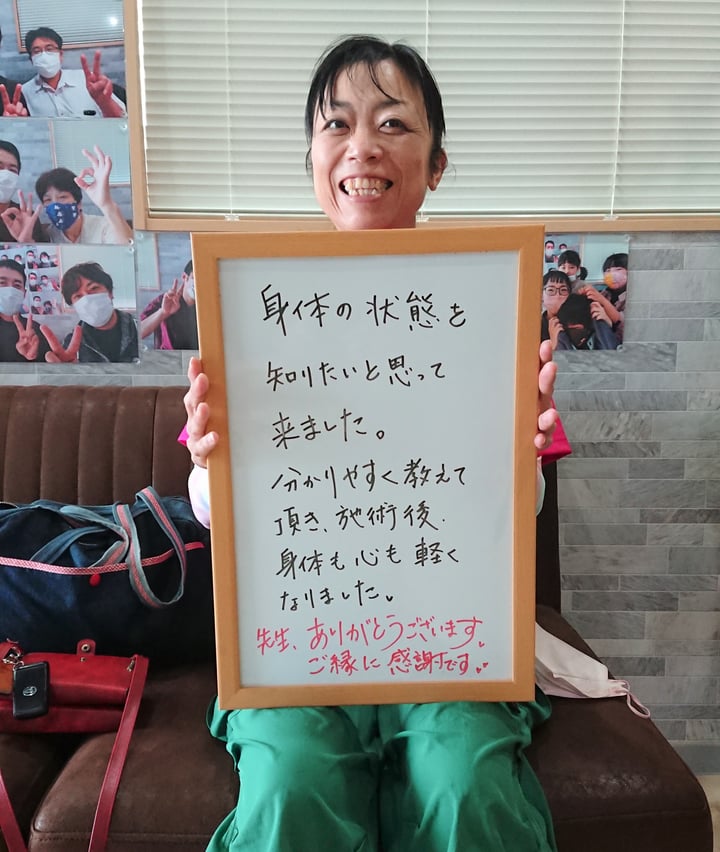 身体の状態を
知りたいと思って
来ました。
分かりやすく教えて
頂き、施術後、
身体も心も軽く
なりました。
先生、ありがとうございます。
ご縁に感謝です。